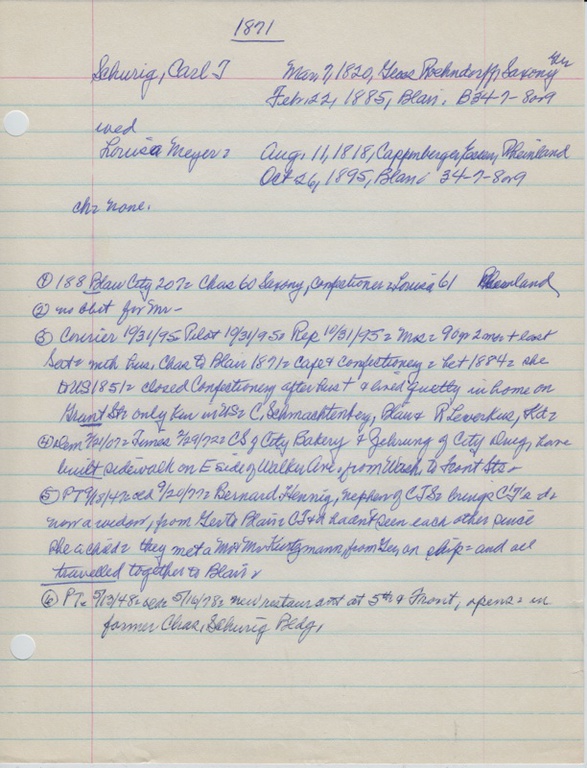 1871
Schurig, Carl T Mar 7, 1820, Geos Rochndorff, Saxony Ger
Feb. 22, 1885, Blair, B34-7-8or9
wed
Louisa Meyer = Aug. 11, 1818, Rheinland
Oct 26, 1895, Blair 34-7-8or9
ch = none.
① 188 Blair City 207 = Chas 60 Saxony, Confectioner = Louisa 61 Rheinland
② no obit for Mr -
③ Courier 10/31/95 Pilot 10/31/95 Rep 10/31/95 = Mrs = + last
Sat = with hus. Chas to Blair 1871 = Cafe & confectionery = bet 1884 = she
to US 1851 = closed Confectionery after + lived quietly in home on
Grant St = only kin in US = C. Schmachtenberg, Blair & R Leverkus,
④ Dem Times = CS of City Bakery & Gehrung of City Drug, have
built sidewalk on E side of Walker Ave. from Wash. to Front Sts
⑤ PT 9/20/77 = Bernard Hennig, nephew of CTS = brings CT's
now a widow, from Ger to Blair = CT & d hadn't seen each other since
she a child = they met a Mr Kurtzmann, from Ger, on ship = and all
travelled together to Blair
⑥ PT = 5/13/48 = 5/16/78 = new restaurant at 5th & Front, opens = in
former Chas. Schurig Bldg.